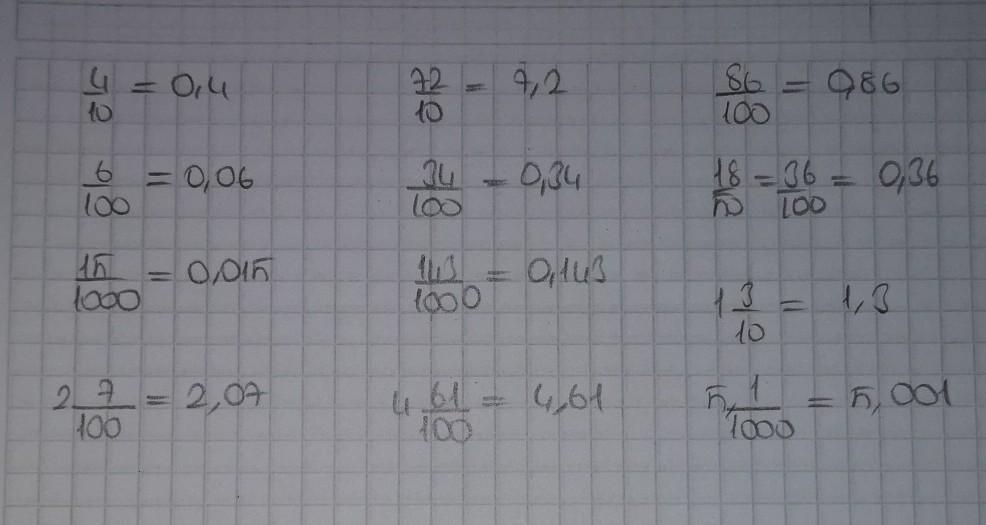 4/10 = 0,4    72/10 = 7,2    86/100 = 0,86
6/100 = 0,06    34/100 = 0,34    18/50 = 36/100 = 0,36
15/1000 = 0,015    143/1000 = 0,143    1 3/10 = 1,3
2 7/100 = 2,07    4 61/100 = 4,61    5 1/1000 = 5,001